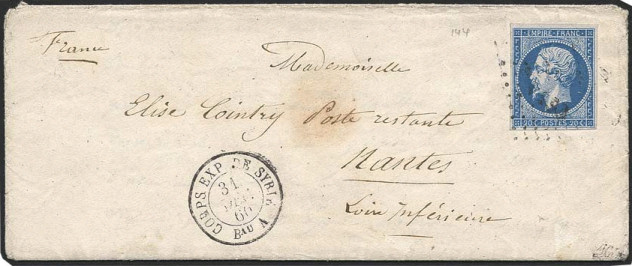 144
EMPIRE FRANC.
France
Mademoiselle
20 C. POSTES 20 C.
Elise Cointry Poste restante
Nantes
CORPS EXP. DE SYRIE
31
60
Bau A
Loire Inférieure